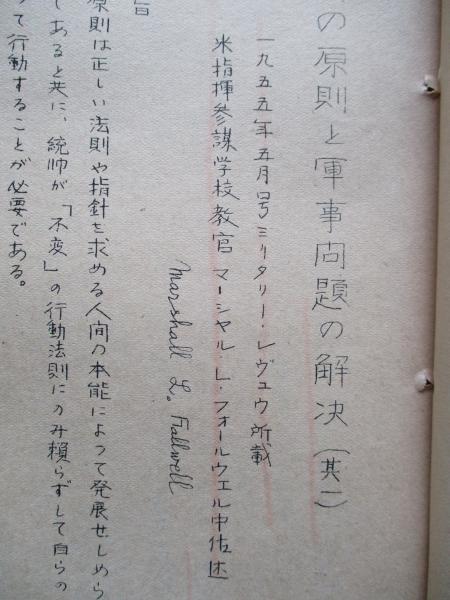 の原則と軍事問題の解決（其一）
一九五五年五月号ミリタリー・レヴュウ所載
米指揮参謀学校教官マーシャル・L・フォールウエル中佐述
Marshall L. Fallwell
旨
原則は正しい法則や指針を求める人間の本能によって発展せしめら
であると共に、統帥が「不変」の行動法則にのみ頼らずして自らの
って行動することが必要である。